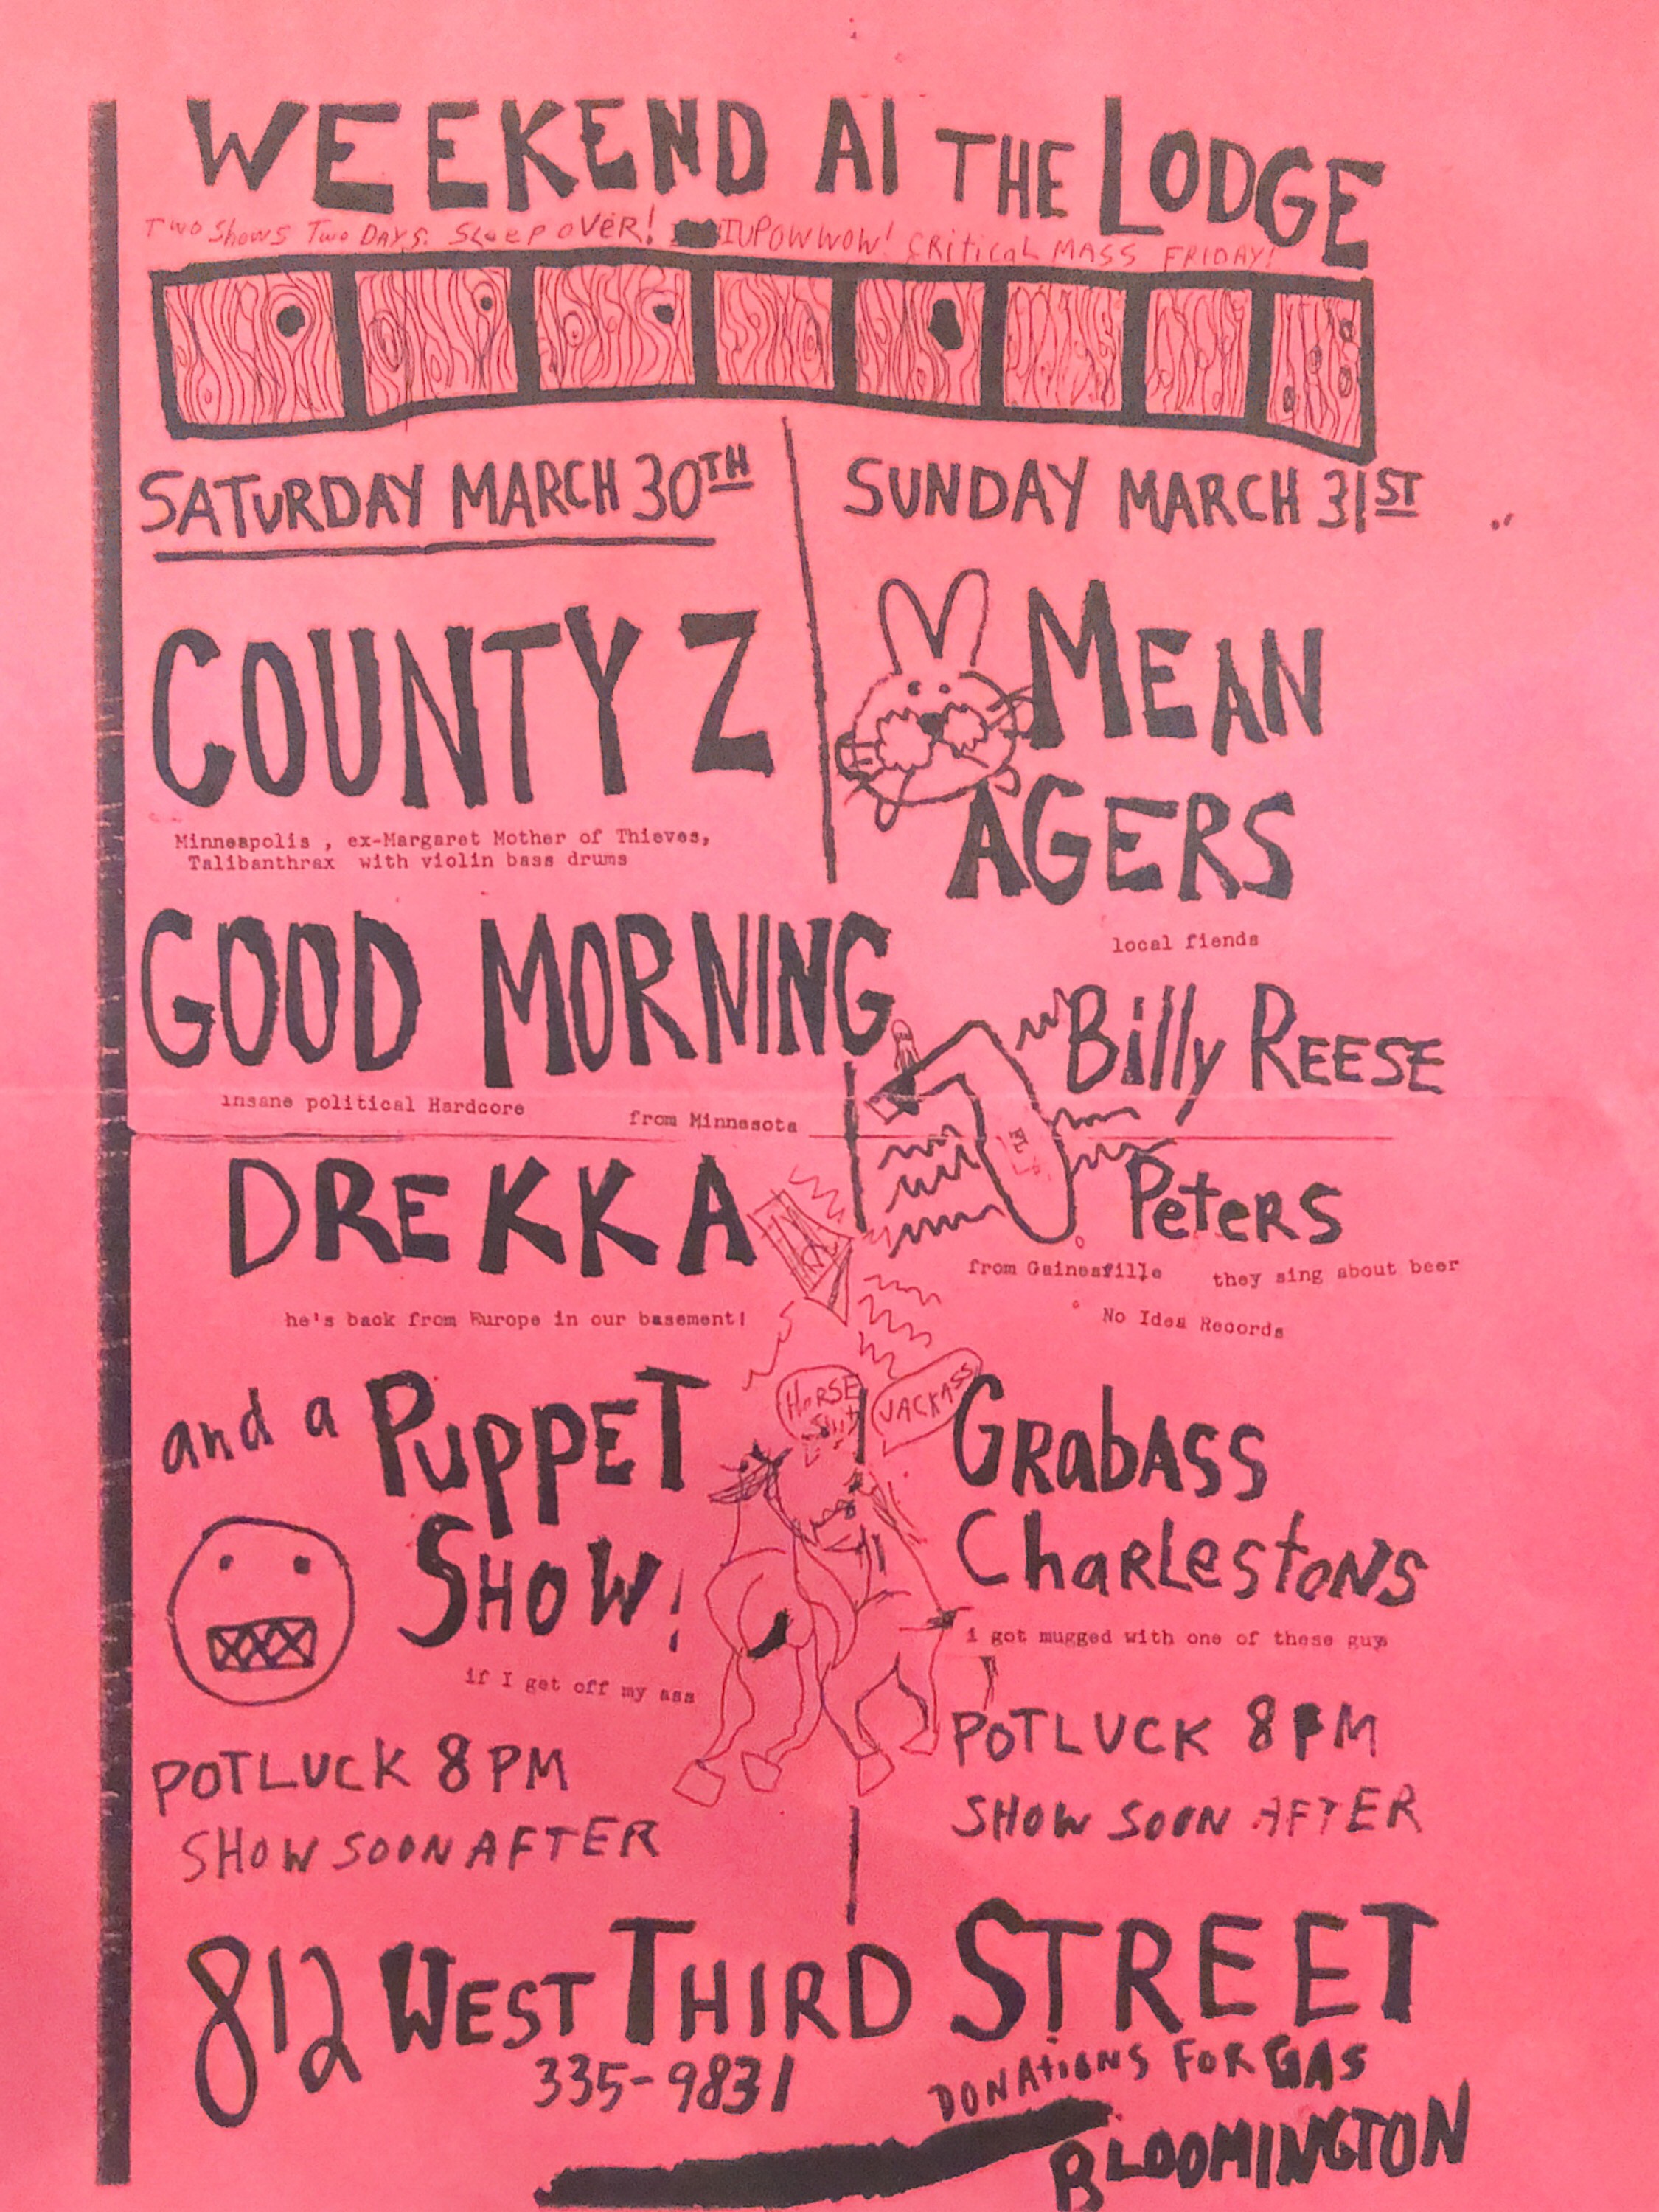 WEEKEND AT THE LODGE
TWO Shows Two DAYS. SLeep oVER! IUPOWWOW! CRitical MASS FRIDAY!
SATURDAY MARCH 30TH
COUNTY Z
Minneapolis , ex-Margaret Mother of Thieves,
Talibanthrax with violin bass drums
GOOD MORNING
insane political Hardcore
from Minnesota
DREKKA
he's back from Europe in our basement!
and a PuppeT
SHOW!
if I get off my ass
POTLUCK 8 PM
SHOW SOON AFTER
SUNDAY MARCH 31ST
MEAN
AGERS
local fiends
Billy REESE
PeteRS
from Gainesville they sing about beer
No Idea Records
HORSE
JACKASS
GRabASS
ChaRLestoNS
i got mugged with one of these guys
POTLUCK 8 PM
SHOW SOON AFTER
812 WEST THIRD STREET
335-9831
DONAtiONS FOR GAS
BLOOMINGTON